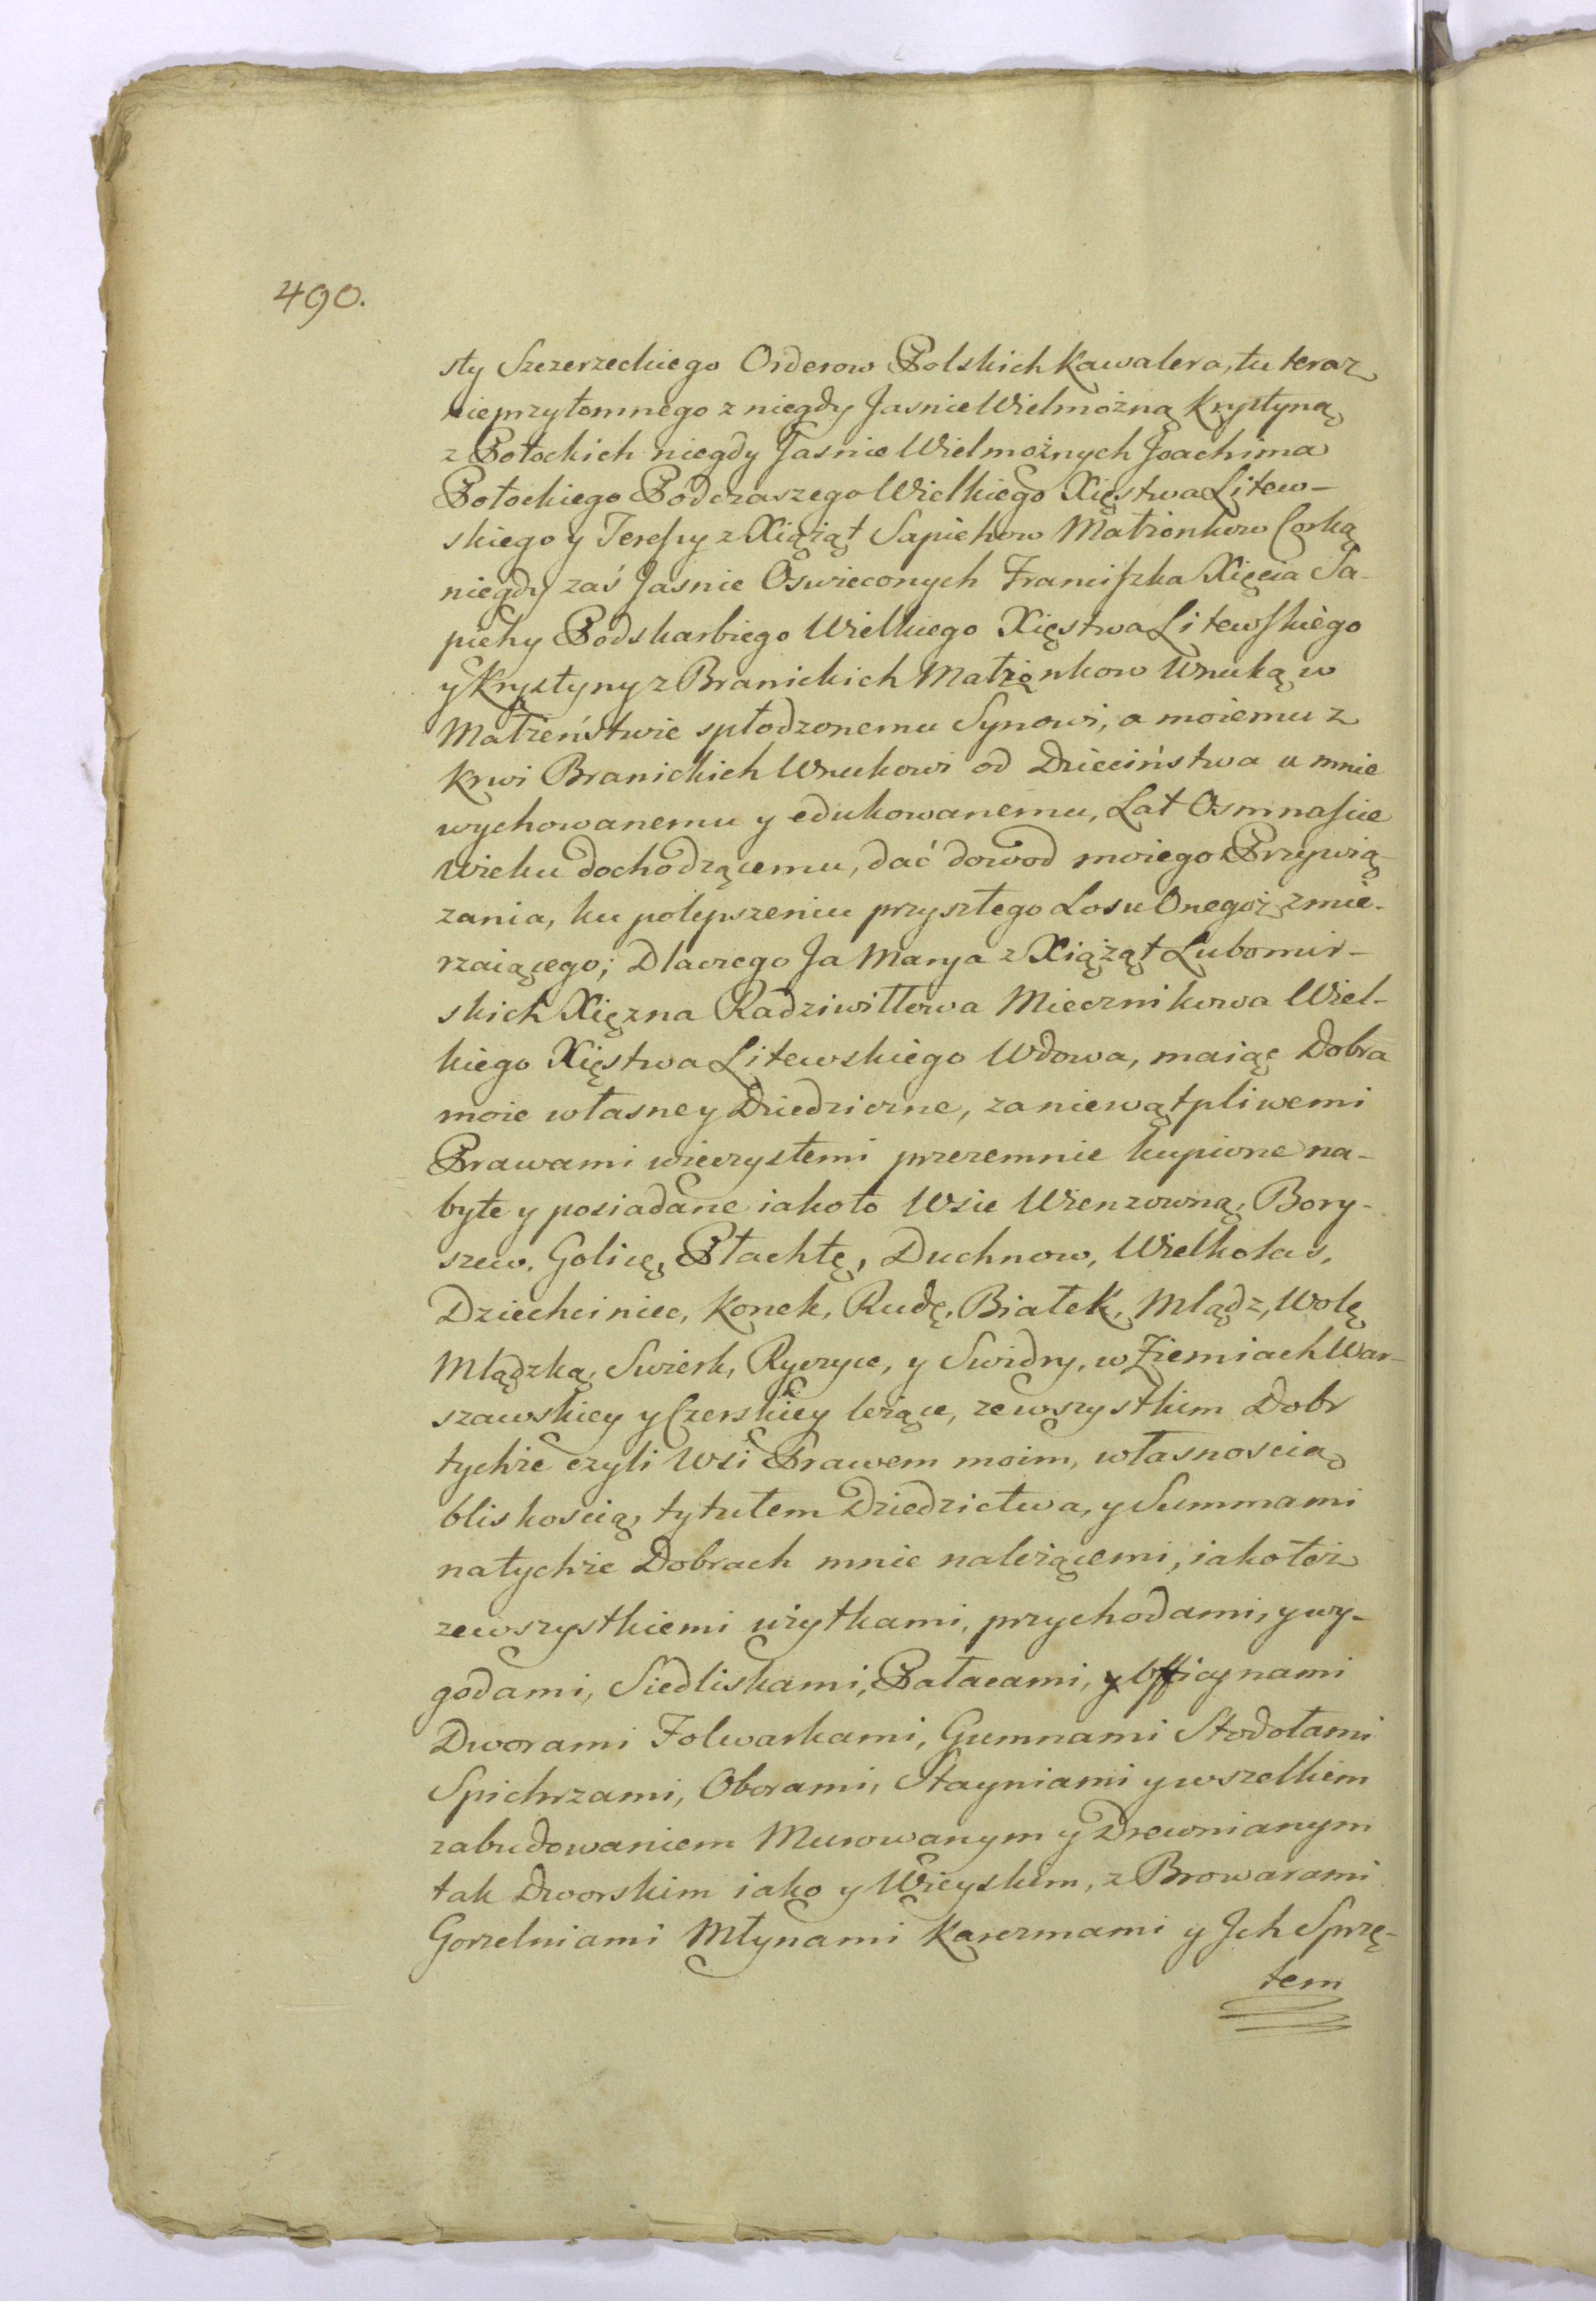 490.
sty Szczerzeckiego Orderow Polskich Kawalera, tu teraz
nieprzytomnego z niegdy Jasnie Wielmożną Krystyną
z Potockich niegdy Jasnie Wielmożnych Joachima
Potockiego Podczaszego Wielkiego Xięstwa Litew-
skiego y Teressy z Xiążąt Sapiehow Małżonkow Corką
niegdy zaś Jasnie Oswieconych Franciszka Xięcia Sa-
piehy Podskarbiego Wielkiego Xięstwa Litewskiego
y Krystyny z Branickich Małżonkow Wnuką w
Małżeństwie spłodzonemu Synowi, a moiemu z
krwi Branickich Wnukowi od Dzieciństwa u mnie
wychowanemu y edukowanemu, Lat Osmnaście
wieku dochodzącemu, dać dowod moiego Przywią-
zania, ku polepszeniu przyszłego Losu Onegoż zmie-
rzaiącego; Dlaczego Ja Marya z Xiążąt Lubomir-
skich Xiężna Radziwiłłowa Miecznikowa Wiel-
kiego Xięstwa Litewskiego Wdowa, maiąc Dobra
moie własne y Dziedziczne, za niewątpliwemi
Prawami wieczystemi przezemnie kupione na-
byte y posiadane iakoto Wsie Wienzowną, Bory-
szew, Golicę, Płachtę, Duchnow, Wielkolas,
Dziechciniec, Konek, Rudę, Białek, Mlądz, Wolę
Mlądzką, Swierk, Ryczyce, y Swidry, w Ziemiach War-
szawskiey y Czerskiey leżące, ze wszystkim Dobr
tychże czyli Wsi Prawem moim, własnoscią
bliskoscią, tytułem Dziedzictwa, y Summami
na tychże Dobrach mnie należącemi, iakoteż
ze wszystkiemi użytkami, przychodami, y wy-
godami, Siedliskami, Pałacami, y Officynami
Dworami Folwarkami, Gumnami Stodołami
Spichrzami, Oborami, Stayniami y wszelkiem
zabudowaniem Murowanym y Drewnianym
tak Dworskim iako y Wieyskim, z Browarami
Gorzelniami Młynami Karczmami y Jch Sprzę-
tem